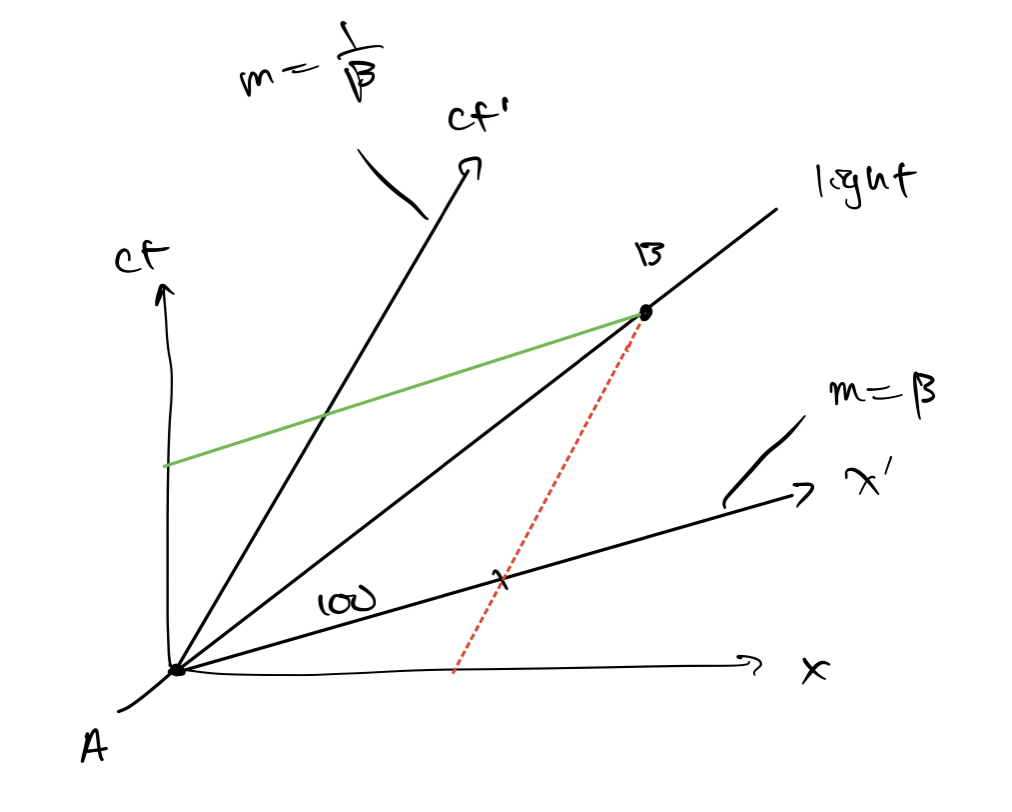 m = 1/β
ct'
light
ct
B
m = β
x'
100
x
A